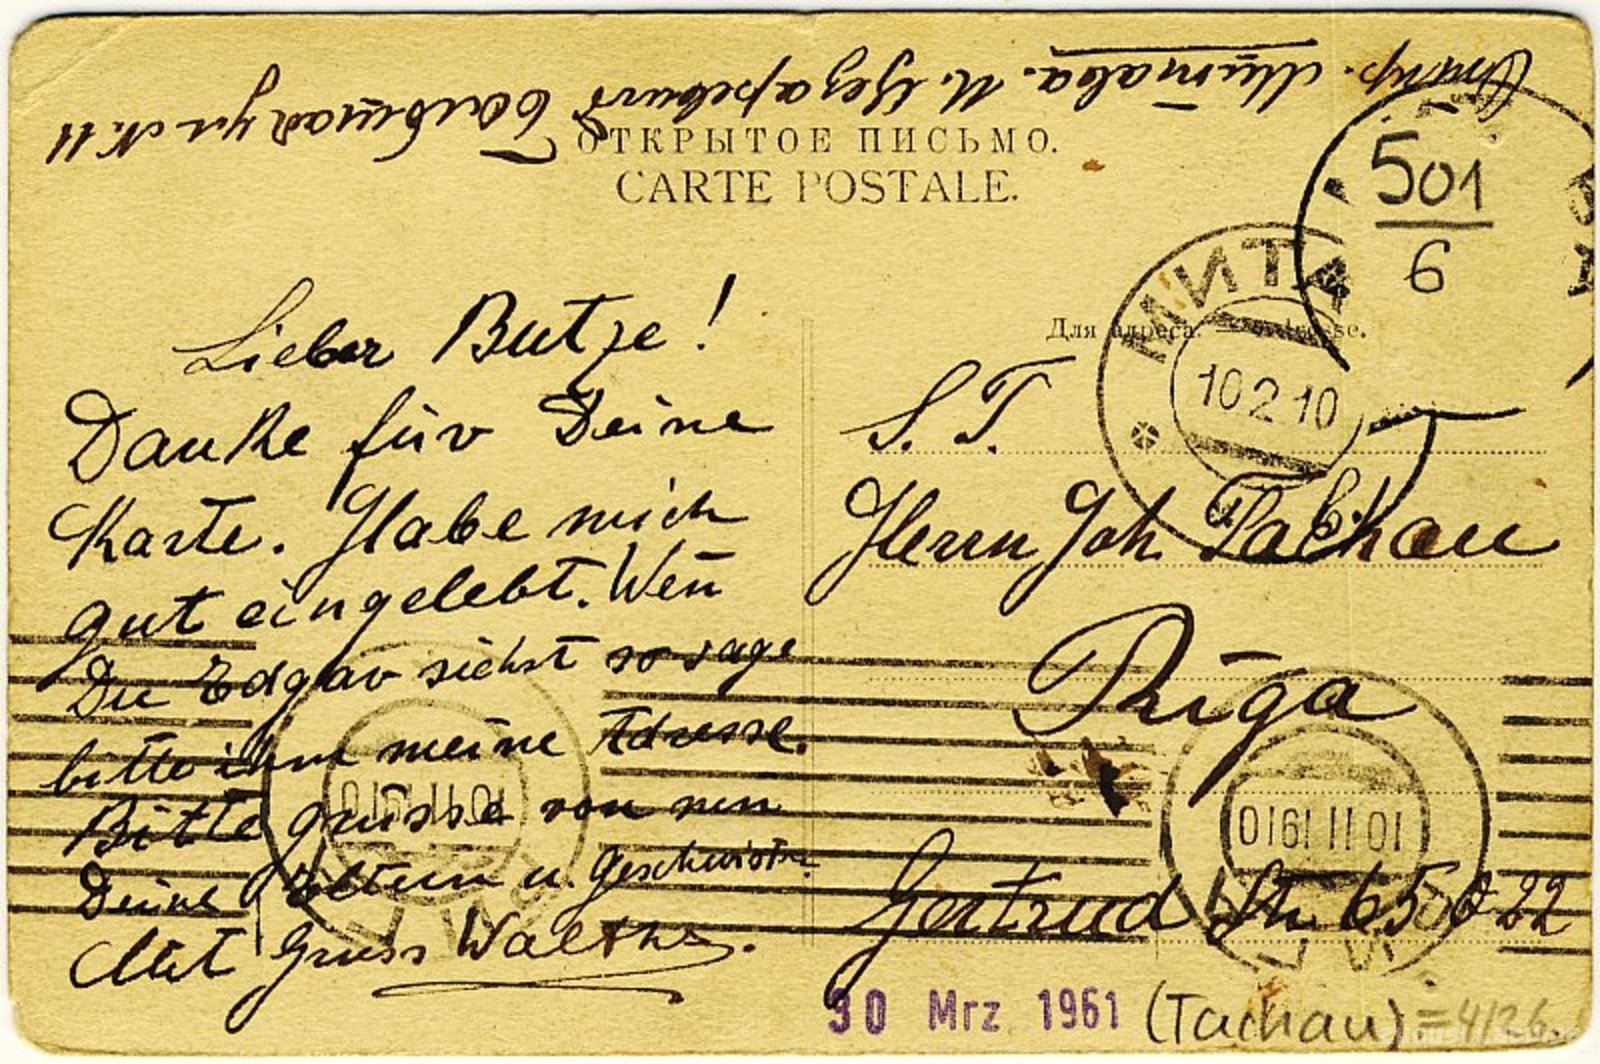 Митава. И. Цезаревичъ Большая ул. № 11
ОТКРЫТОЕ ПИСЬМО.
CARTE POSTALE.
501
6
МИТАВА
10 2 10
Для адреса. — Adresse.
Lieber Butze!
Danke für Deine
Karte. Habe mich
gut eingelebt. Wen̄
Du Edgar siehst so sage
bitte ihm meine Adresse.
Bitte grüsse von
Deine Eltern u. Geschwister.
Mit Gruss Walther.
S. T.
Herrn Joh. Tachau
Riga
Gertrud Str. 65 Q 22
10 11 1910
10 11 1910
30 Mrz 1961
(Tachau) = 4126.